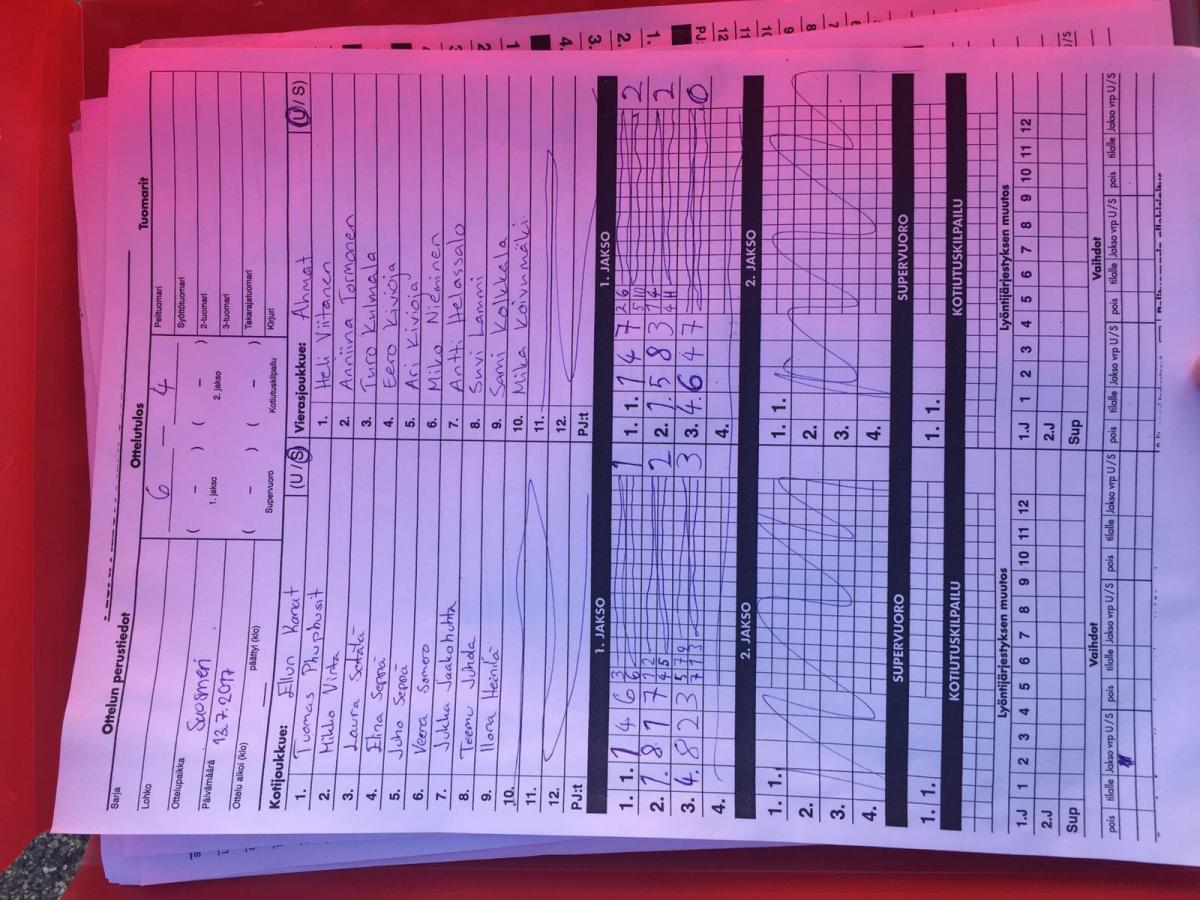 Ottelun perustiedot
Sarja
Lohko
Ottelupaikka Suosmeri
Päivämäärä 13.7.2017
Ottelu alkoi (klo) päättyi (klo)
Ottelutulos
6 – 4
( – ) ( – )
1. jakso 2. jakso
( – ) ( – )
Supervuoro Kotiutuskilpailu
Tuomarit
Pelituomari
Syöttötuomari
2-tuomari
3-tuomari
Takarajatuomari
Kirjuri
Kotijoukkue: Ellun Kanat (U/S)
1. Tuomas
2. Mikko Virta
3. Laura Setälä
4. Elina Seppä
5. Juho Seppä
6. Veera Somero
7. Jukka Jaakohuhta
8. Teemu Juhola
9. Ilona Heinilä
10.
11.
12.
PJ:t
Vierasjoukkue: Ahmat (U/S)
1. Heli Viitanen
2. Anniina Tormonen
3. Turo Kulmala
4. Eero Kivioja
5. Ari Kivioja
6. Miko Nieminen
7. Antti Helassalo
8. Suvi Lammi
9. Sami Kolkkala
10. Mika Koivunmäki
11.
12.
PJ:t
1. JAKSO
1. 1. 1 4 6 3 6 1
2. 1. 8 1 7 1 2 4 5 2
3. 4. 8 2 3 5 7 9 7 1 3 3
4.
1. JAKSO
1. 1. 1 4 7 2 6 5 10 2
2. 1. 5 8 3 1 4 4 H 2
3. 4. 6 4 7 0
4.
2. JAKSO
1. 1.
2.
3.
4.
2. JAKSO
1. 1.
2.
3.
4.
SUPERVUORO
1. 1.
SUPERVUORO
1. 1.
KOTIUTUSKILPAILU
KOTIUTUSKILPAILU
Lyöntijärjestyksen muutos
1.J 1 2 3 4 5 6 7 8 9 10 11 12
2.J
Sup
Lyöntijärjestyksen muutos
1.J 1 2 3 4 5 6 7 8 9 10 11 12
2.J
Sup
Vaihdot
pois tilalle Jakso vrp U/S pois tilalle Jakso vrp U/S pois tilalle Jakso vrp U/S
Vaihdot
pois tilalle Jakso vrp U/S pois tilalle Jakso vrp U/S pois tilalle Jakso vrp U/S